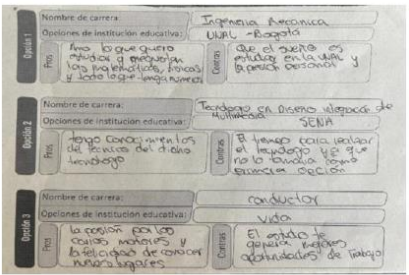 Opción 1
Nombre de carrera: Ingenieria Mecanica
Opciones de institución educativa: UNAL - Bogotá
Pros
Amo lo que quiero
estudiar y me gustan
las matematicas, fisicas
y todo lo que tenga numeros
Contras
Que el sueño es
estudiar en la UNAL y
la presion personal
Opción 2
Nombre de carrera: Tecnologo en Diseño integracion de
Multimedia
Opciones de institución educativa: SENA
Pros
tengo conocimientos
del tecnico del dicho
tecnologo
Contras
El tiempo para realizar
el tecnologo ya que
no lo tomaria como
primera opción
Opción 3
Nombre de carrera: conductor
Opciones de institución educativa: vida
Pros
la pasion por los
carros motores y
la felicidad de conocer
lugares
Contras
El estudio te
genera mejores
oportunidades de trabajo